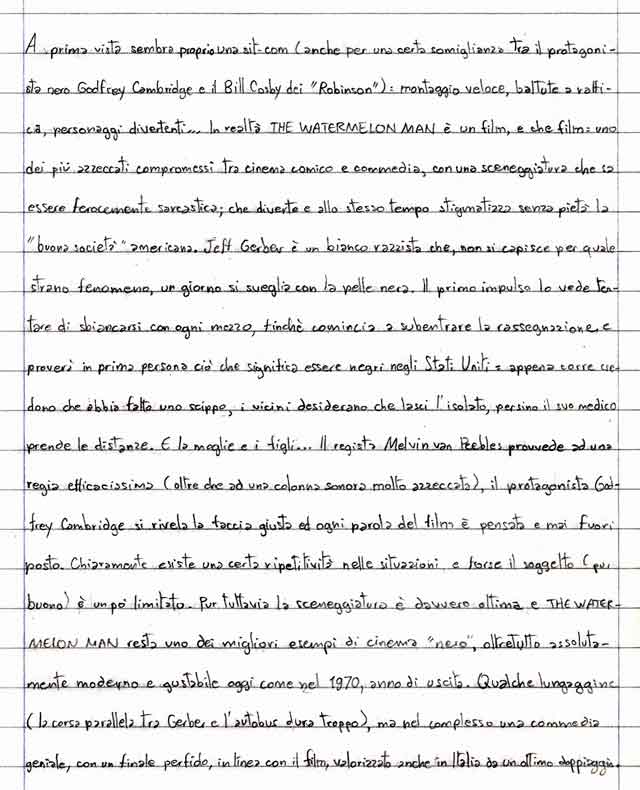 A prima vista sembra proprio una sit-com (anche per una certa somiglianza tra il protagoni-
sta nero Godfrey Cambridge e il Bill Cosby dei "Robinson"): montaggio veloce, battute a raffi-
ca, personaggi divertenti... In realtà THE WATERMELON MAN è un film, e che film: uno
dei più azzeccati compromessi tra cinema comico e commedia, con una sceneggiatura che sa
essere ferocemente sarcastica; che diverte e allo stesso tempo stigmatizza senza pietà la
"buona società" americana. Jeff Gerber è un bianco razzista che, non si capisce per quale
strano fenomeno, un giorno si sveglia con la pelle nera. Il primo impulso lo vede ten-
tare di sbiancarsi con ogni mezzo, finchè comincia a subentrare la rassegnazione, e
proverà in prima persona ciò che significa essere negri negli Stati Uniti: appena corre cre-
dono che abbia fatto uno scippo, i vicini desiderano che lasci l'isolato, persino il suo medico
prende le distanze. E la moglie e i figli... Il regista Melvin van Peebles provvede ad una
regia efficacissima (oltre che ad una colonna sonora molto azzeccata), il protagonista God-
frey Cambridge si rivela la faccia giusta ed ogni parola del film è pensata e mai fuori
posto. Chiaramente esiste una certa ripetitività nelle situazioni e forse il soggetto (pur
buono) è un po' limitato. Pur tuttavia la sceneggiatura è davvero ottima e THE WATER-
MELON MAN resta uno dei migliori esempi di cinema "nero", oltretutto assoluta-
mente moderno e gustabile oggi come nel 1970, anno di uscita. Qualche lungaggine
(la corsa parallela tra Gerber e l'autobus dura troppo), ma nel complesso una commedia
geniale, con un finale perfido, in linea con il film, valorizzato anche in Italia da un ottimo doppiaggio.